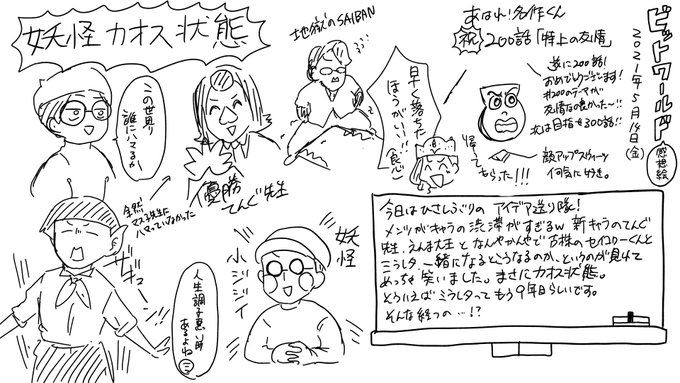 妖怪カオス状態
地獄のSAIBAN
あはれ!名作くん
祝 200話「特上の友情」
ビットワールド
2021年5月14日(金)
感想絵
遂に200話!
おめでとうございます!
#200のテーマが
友情なの良かった〜!!
次は目指せ300話!!
早く落ちた
ほうがいい!!
食心
帰って
もらった!!!
顔アップスウィーツ
何気に好き。
この世界
誰にハマるか
優勝
てんぐ先生
全然
マスミ先生に
ハマっていなかった
妖怪
小ジジイ
人生調子悪い時
あるよね
今日はひさしぶりのアイデア送り隊!
メンツがキャラの渋滞がすぎるw 新キャラのてんぐ
先生、えんま大王となんやかんやで古株のセイコーくんと
ミうしタ、一緒になるとどうなるのか、というのが見れて
めっちゃ笑いました。まさにカオス状態。
そういえばミうしタってもう9年目らしいです。
そんな経つの…!?